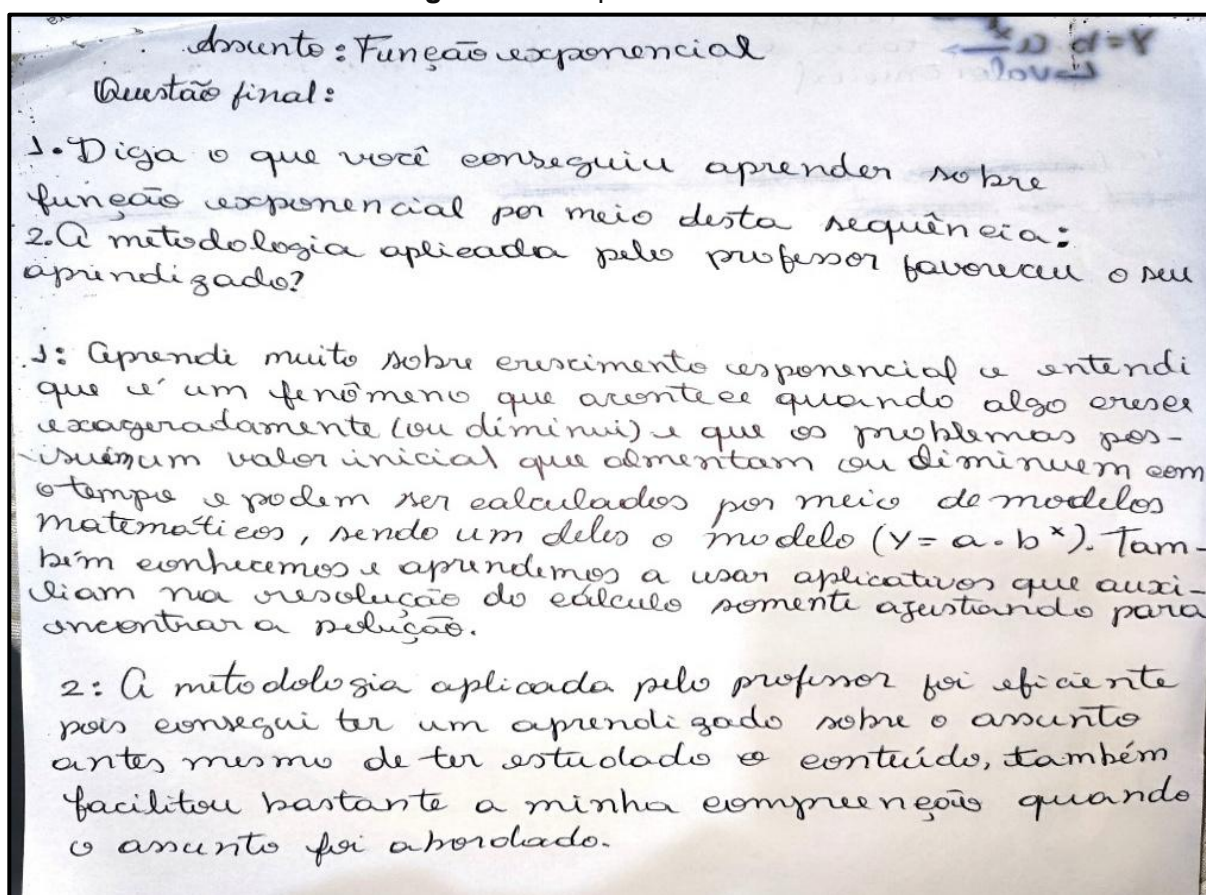 Assunto: Função exponencial
Questão final:
1. Diga o que você conseguiu aprender sobre
função exponencial por meio desta sequência:
2. A metodologia aplicada pelo professor favoreceu o seu
aprendizado?
1: Aprendi muito sobre crescimento exponencial e entendi
que é um fenômeno que acontece quando algo cresce
exageradamente (ou diminui) e que os problemas pos-
suem um valor inicial que almentam ou diminuem com
o tempo e podem ser calculados por meio de modelos
matemáticos, sendo um deles o modelo (y = a . b ˣ). Tam-
bém conhecemos e aprendemos a usar aplicativos que auxi-
liam na resolução do cálculo somente ajustando para
encontrar a solução.
2: A metodologia aplicada pelo professor foi eficiente
pois consegui ter um aprendizado sobre o assunto
antes mesmo de ter estudado o conteúdo, também
facilitou bastante a minha compreenção quando
o assunto foi abordado.